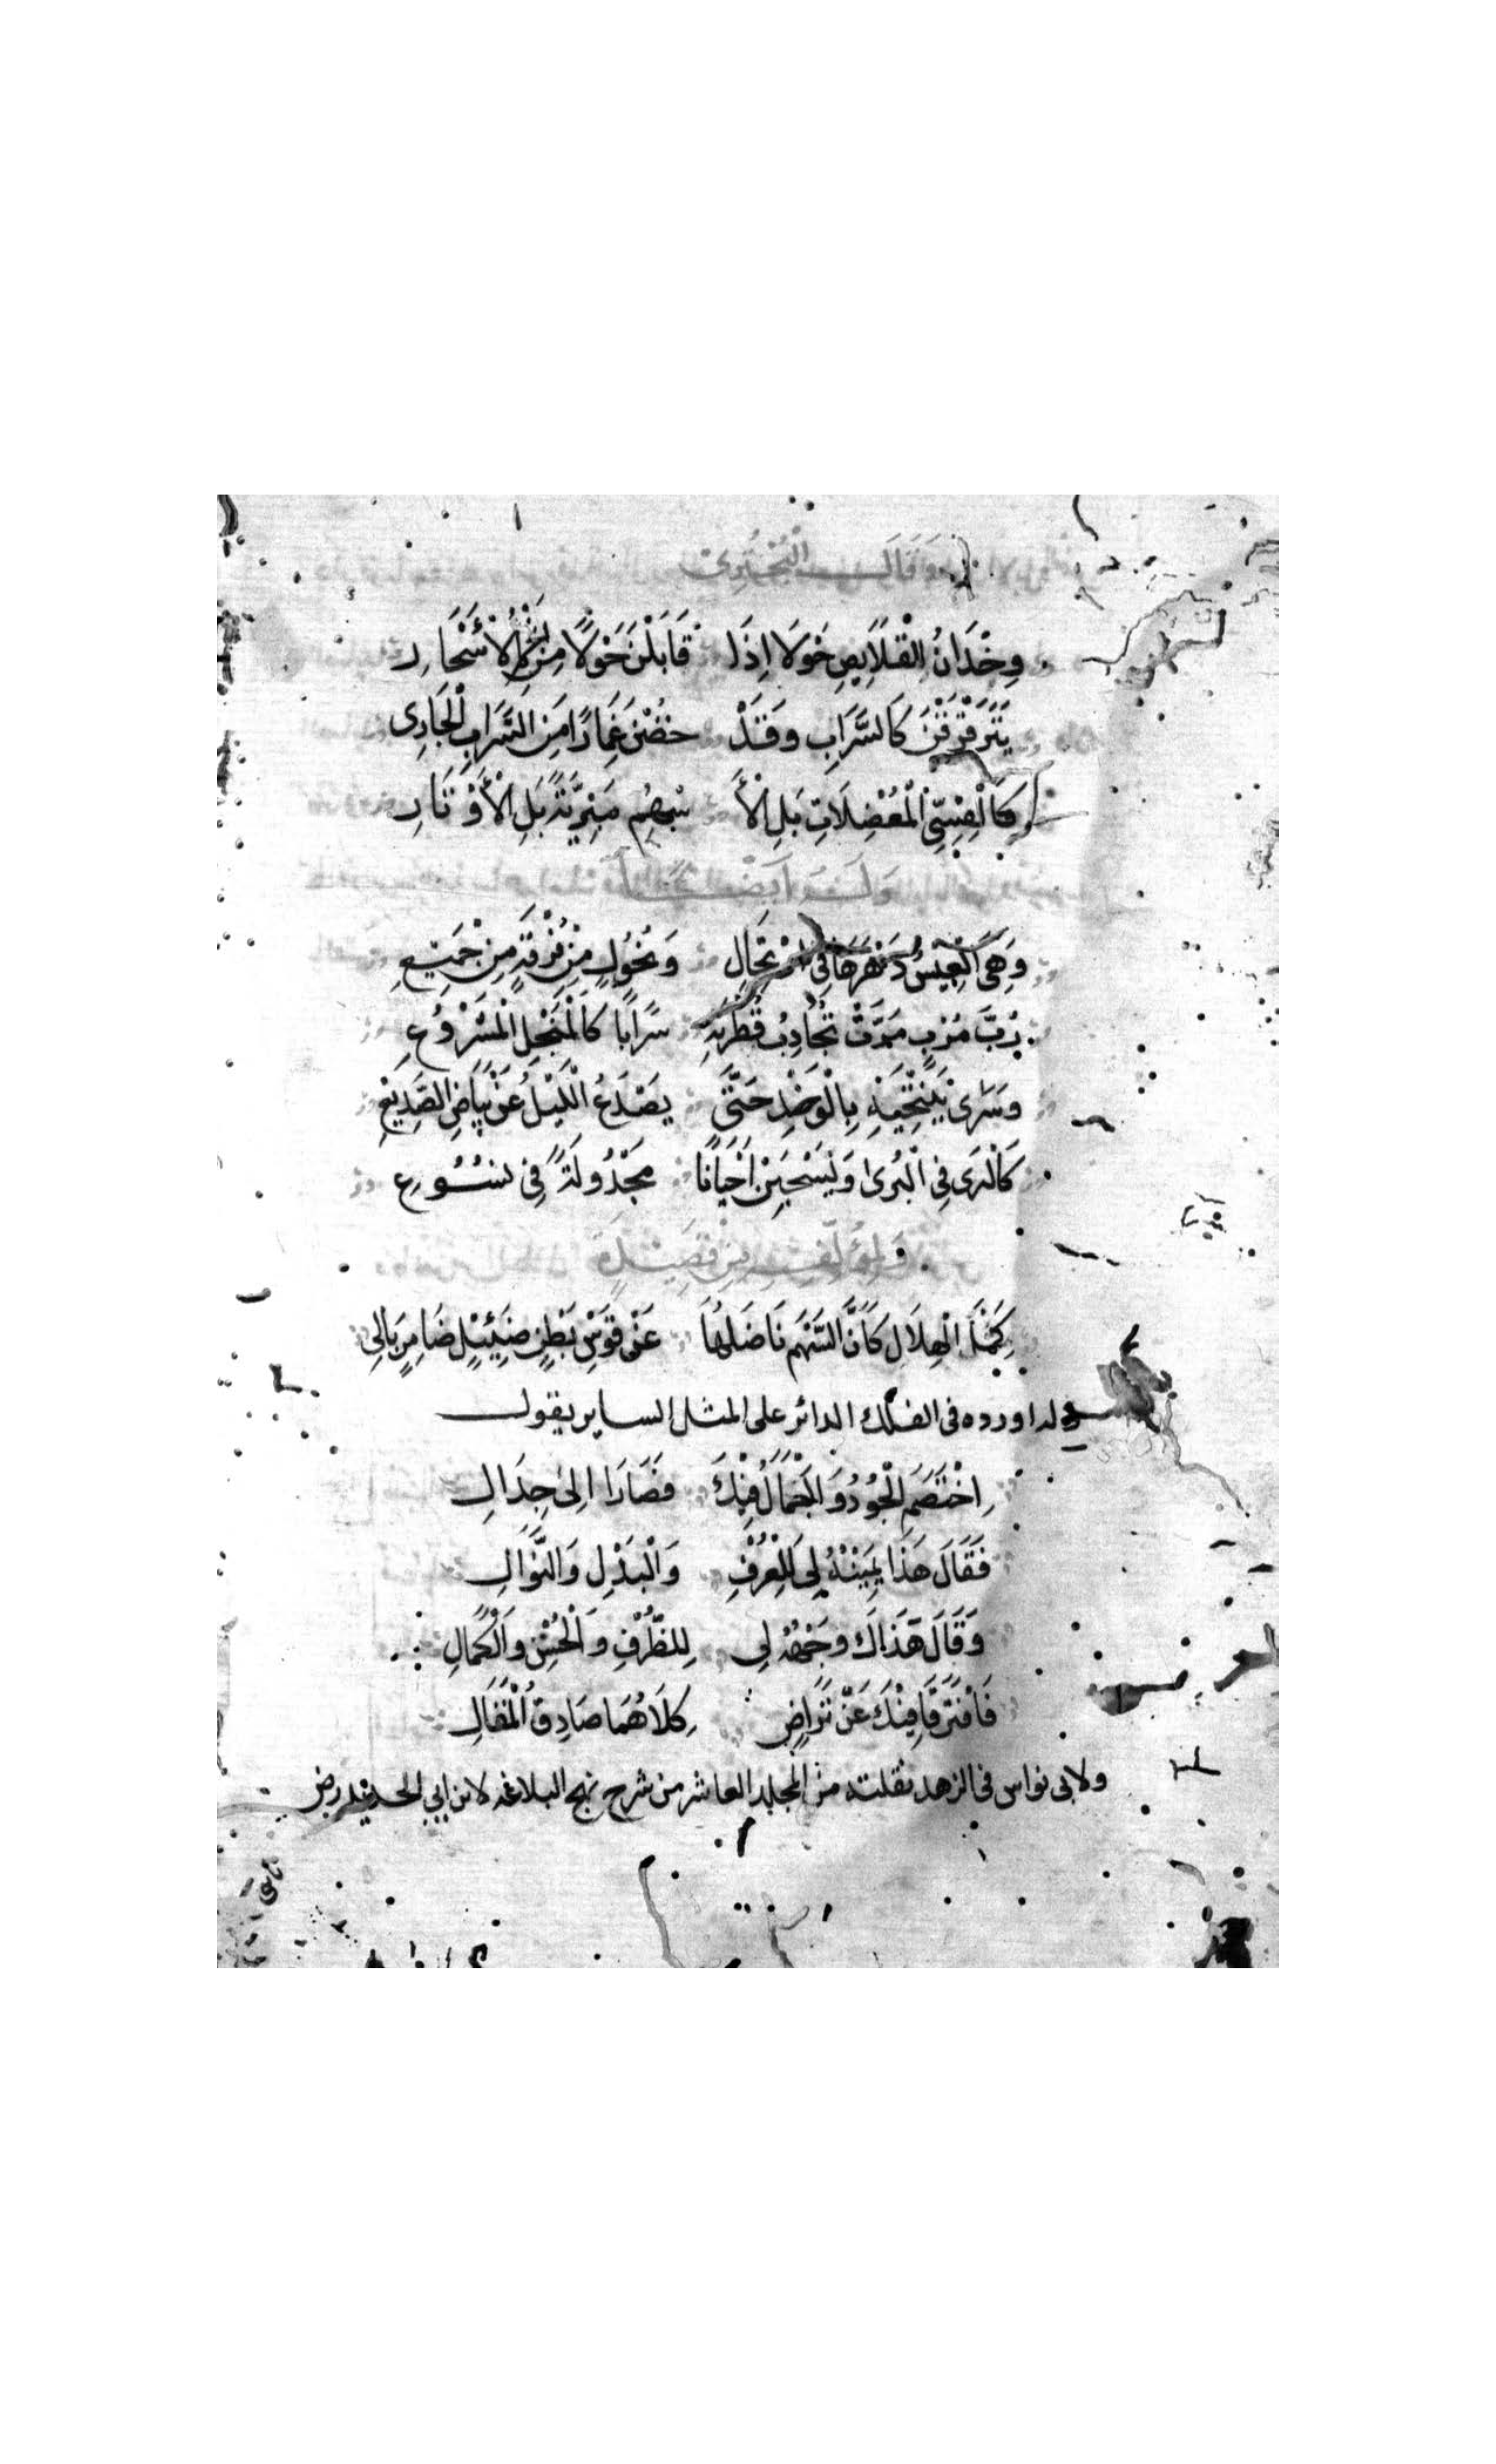 وَقَالَ الْبُحْتُرِيُّ
وِخْدَانُ الْقِلَايِصِ حَوْلَا إِذَا قَابَلْنَ حَوْلًا مِنْ الْأَسْحَارِ
يَتَرَقْرَقْنَ كَالسَّرَابِ وَقَدْ خُضْنَ غِمَارًا مِنَ السَّرَابِ الْجَارِي
كَالْقِسِيِّ الْمُعْطَفَاتِ بَلِ الْأَ سْهُمِ مَبْرِيَّةً بَلِ الْأَوْتَارِ
وَلَهُ أَيْضًا
وَهِيَ الْعِيسُ دَهْرَهَا فِي ارْتِحَالٍ وَحُلُولٍ مِنْ فُرْقَةٍ مِنْ جَمِيعِ
رُبَّ مَرْتٍ مَرَّتْ تُجَاذِبُ قُطْرَيْهِ سَرَابًا كَالْمَنْهَلِ الْمَشْرُوعِ
وَسَرًى تَنْتَحِيهِ بِالْوَخْدِ حَتَّى يَصْدَعَ اللَّيْلَ عَنْ بَيَاضِ الصَّدِيعِ
كَالْبُرَى فِي الْبُرَى وَيُحْسَبْنَ أَحْيَانًا مَجْدُولَةً فِي نُسُوعِ
وَلِمُؤَلِّفِهِ مِنْ قَصِيدَةٍ
كَمَا الْهِلَالِ كَأَنَّ السَّهْمَ نَاضَلَهَا عَنْ قَوْسِ بَطْنٍ ضَئِيلٍ ضَامِرٍ بَالِي
وله اورده فى الفلك الدائر على المثل الساير يقول
اِخْتَصَمَ الْجُودُ وَالْجَمَالُ فِيكَ فَصَارَا إِلَى جِدَالِ
فَقَالَ هَذَا يَمِينُهُ لِي لِلْعُرْفِ وَالْبَذْلِ وَالنَّوَالِ
وَقَالَ هَذَاكَ وَجْهُهُ لِي لِلظَّرْفِ وَالْحُسْنِ وَالْكَمَالِ
فَافْتَرَقَا فِيكَ عَنْ تَرَاضٍ كِلَاهُمَا صَادِقُ الْمَقَالِ
ولابى نواس فى الزهد نقلته من المجلد العاشر من شرح نهج البلاغه لابن ابي الحديد رض